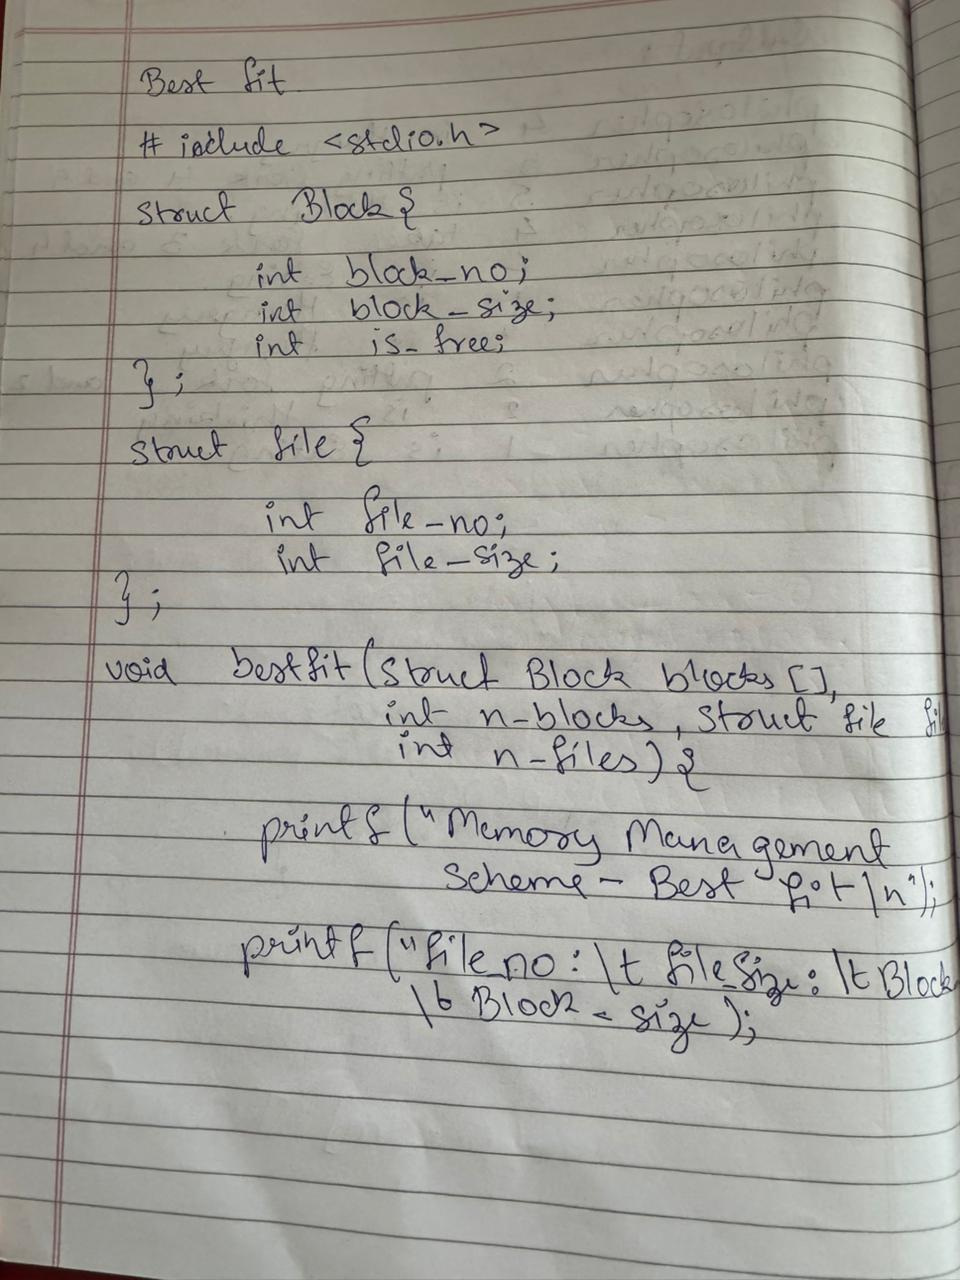 Best fit
# include <stdio.h>
struct Block {
int block_no;
int block_size;
int is_free;
};
struct file {
int file_no;
int file_size;
};
void bestfit (struct Block blocks [],
int n-blocks, struct file
int n-files) {
printf ("Memory Management
Scheme - Best fit \n");
printf ("file no: \t file_size: \t Block
\t Block - size );